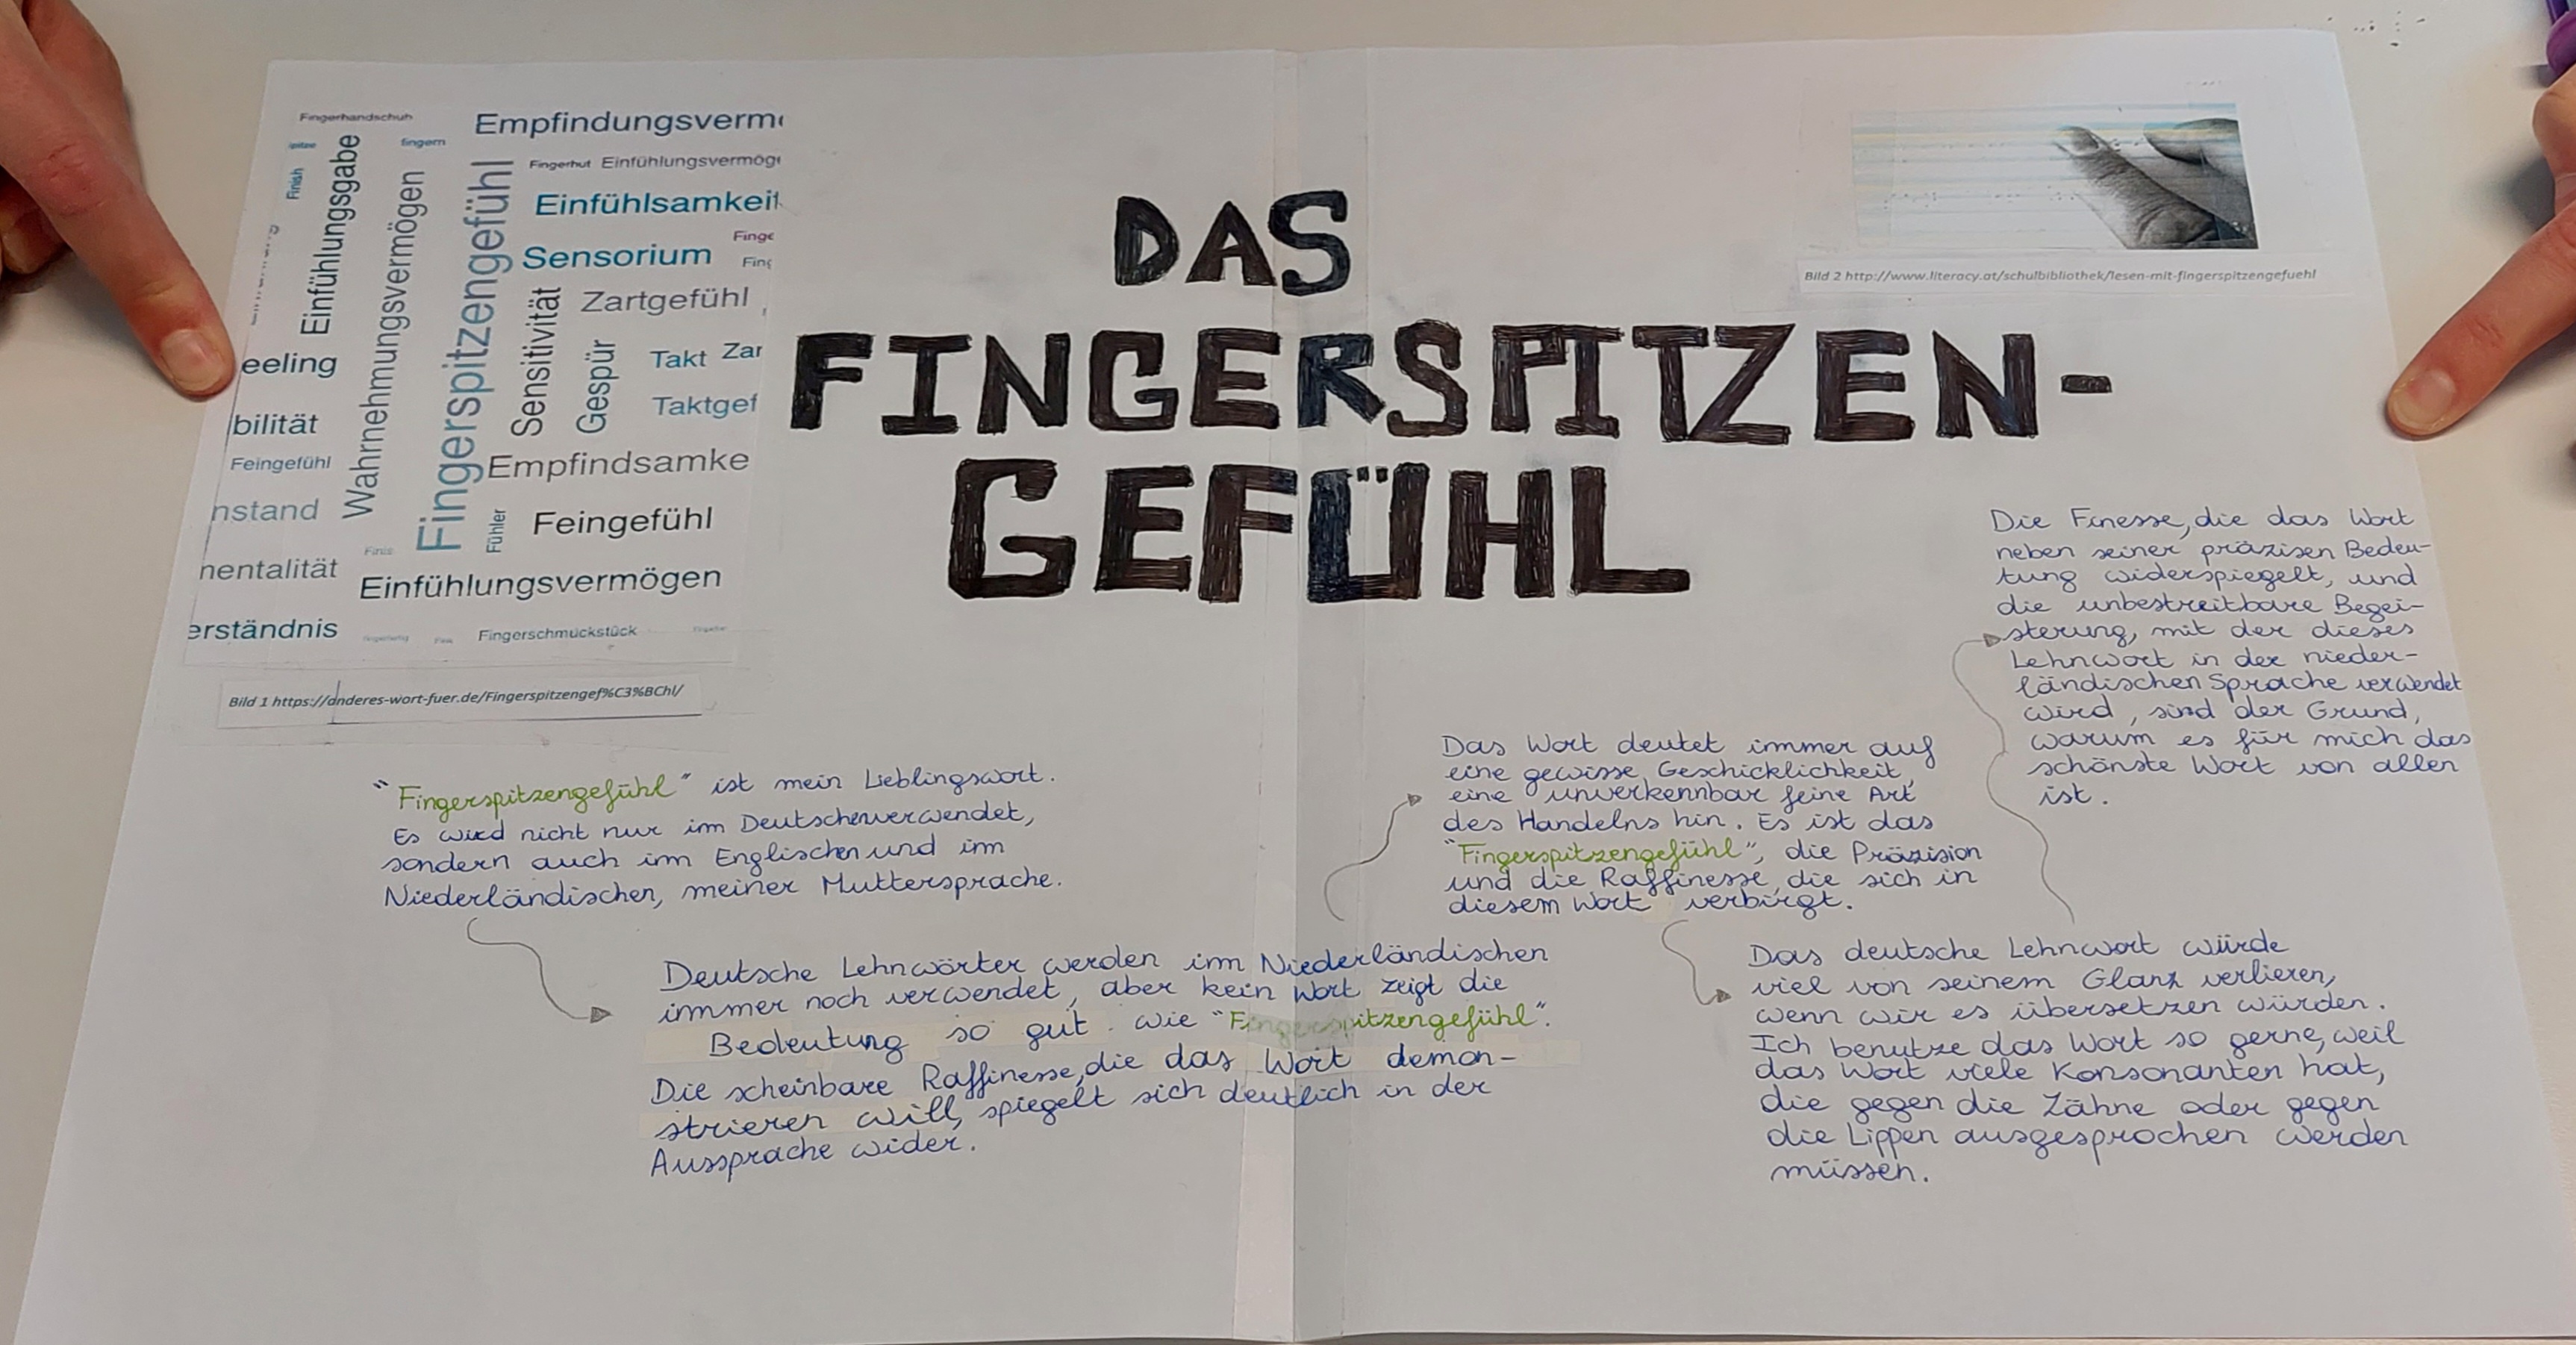 Fingerhandschuh
Empfindungsverm
spitze
fingern
Finish
Einfühlungsgabe
Wahrnehmungsvermögen
Fingerspitzengefühl
Fingerhut Einfühlungsvermög
Einfühlsamkeit
Finge
Sensorium
Fing
Sensitivität
Zartgefühl
Gespür
Takt Zar
Taktgef
eeling
bilität
Feingefühl
Empfindsamke
nstand
Fühler
Feingefühl
Finis
nentalität
Einfühlungsvermögen
erständnis
Fingerschmuckstück
Bild 1 https://anderes-wort-fuer.de/Fingerspitzengef%C3%BChl/
DAS
FINGERSPITZEN-
GEFÜHL
Bild 2 http://www.literacy.at/schulbibliothek/lesen-mit-fingerspitzengefuehl
"Fingerspitzengefühl" ist mein Lieblingswort.
Es wird nicht nur im Deutschen verwendet,
sondern auch im Englischen und im
Niederländischen, meiner Muttersprache.
Deutsche Lehnwörter werden im Niederländischen
immer noch verwendet, aber kein Wort zeigt die
Bedeutung so gut wie "Fingerspitzengefühl".
Die scheinbare Raffinesse, die das Wort demon-
strieren will, spiegelt sich deutlich in der
Aussprache wider.
Das Wort deutet immer auf
eine gewisse Geschicklichkeit,
eine unverkennbar feine Art
des Handelns hin. Es ist das
"Fingerspitzengefühl", die Präzision
und die Raffinesse, die sich in
diesem Wort verbirgt.
Das deutsche Lehnwort würde
viel von seinem Glanz verlieren,
wenn wir es übersetzen würden.
Ich benutze das Wort so gerne, weil
das Wort viele Konsonanten hat,
die gegen die Zähne oder gegen
die Lippen ausgesprochen werden
müssen.
Die Finesse, die das Wort
neben seiner präzisen Bedeu-
tung widerspiegelt, und
die unbestreitbare Begei-
sterung, mit der dieses
Lehnwort in der nieder-
ländischen Sprache verwendet
wird, sind der Grund,
warum es für mich das
schönste Wort von allen
ist.